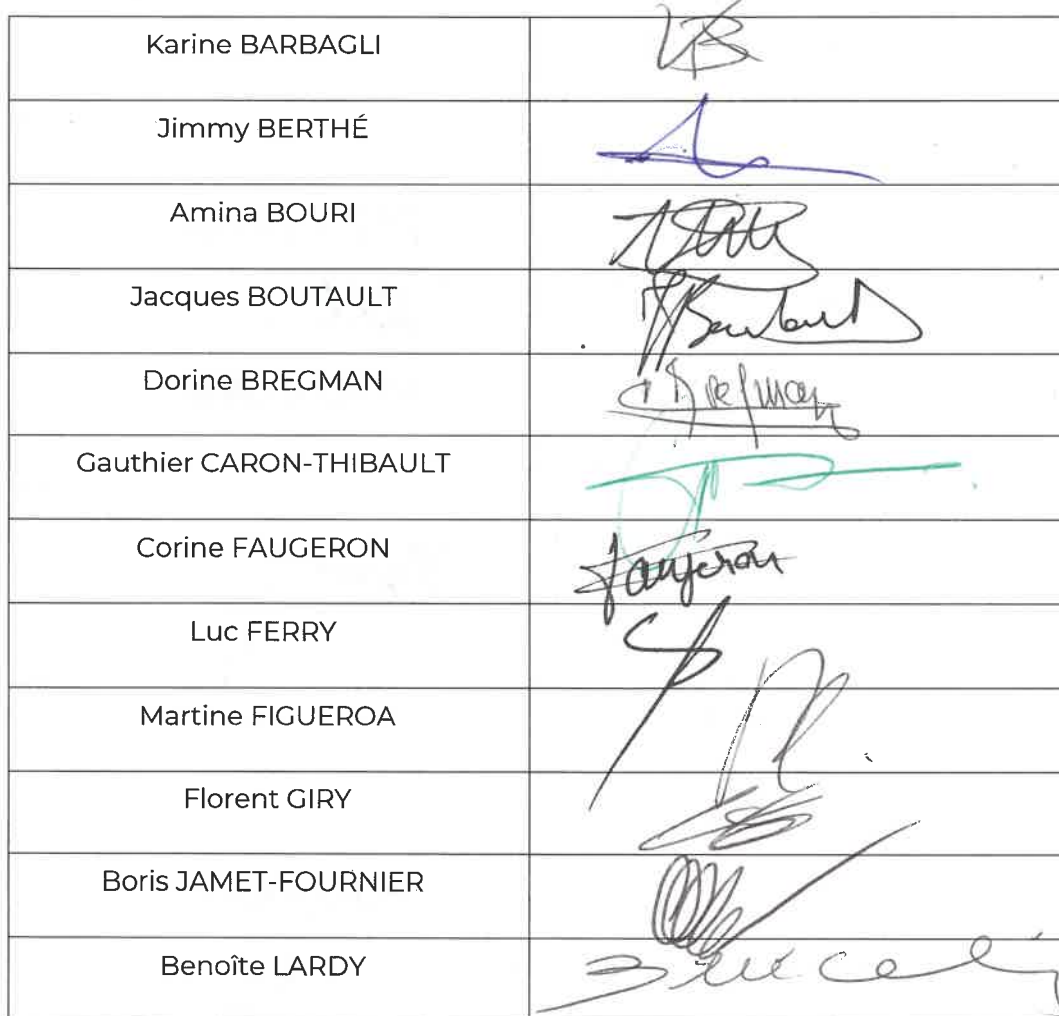 Karine BARBAGLI
Jimmy BERTHÉ
Amina BOURI
Jacques BOUTAULT
Boutault
Dorine BREGMAN
Bregman
Gauthier CARON-THIBAULT
Corine FAUGERON
Faugeron
Luc FERRY
Martine FIGUEROA
Florent GIRY
Boris JAMET-FOURNIER
Benoîte LARDY